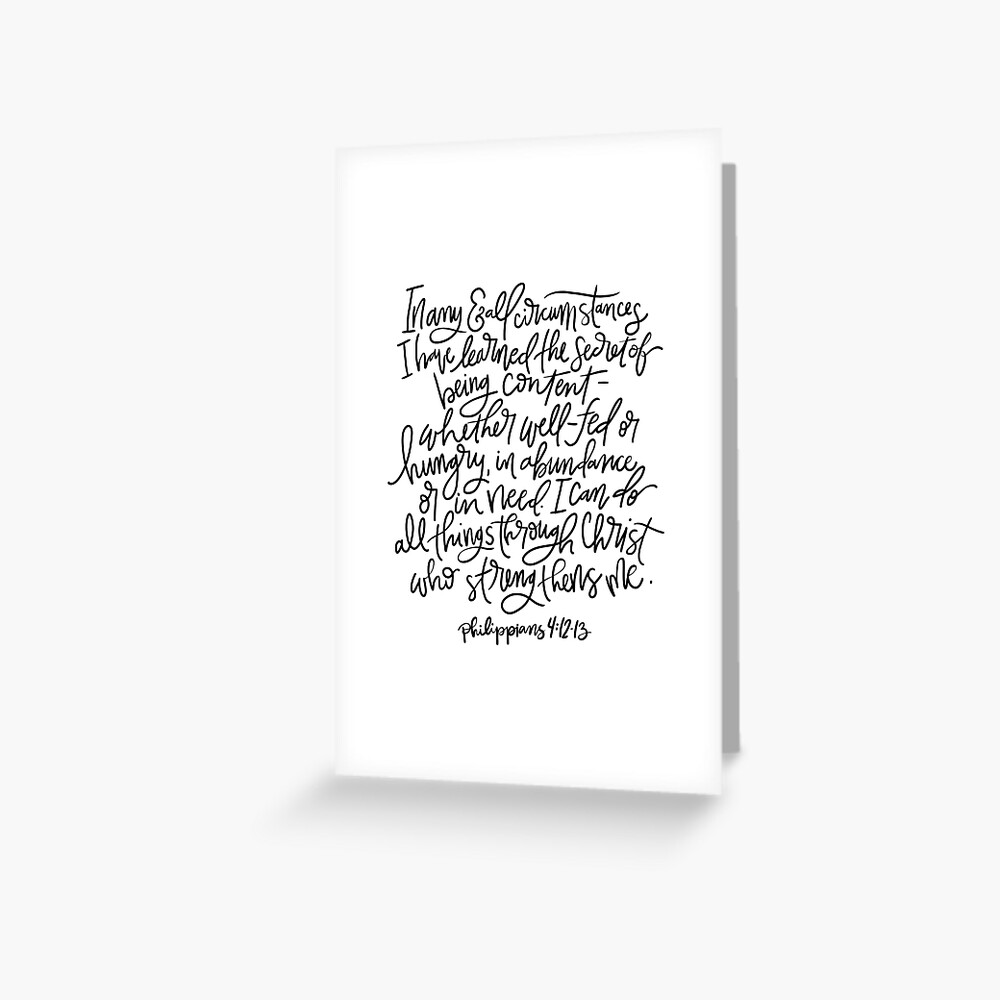 In any & all circumstances
I have learned the secret of
being content-
whether well-fed or
hungry, in abundance
or in need. I can do
all things through Christ
who strengthens me.
philippians 4:12-13